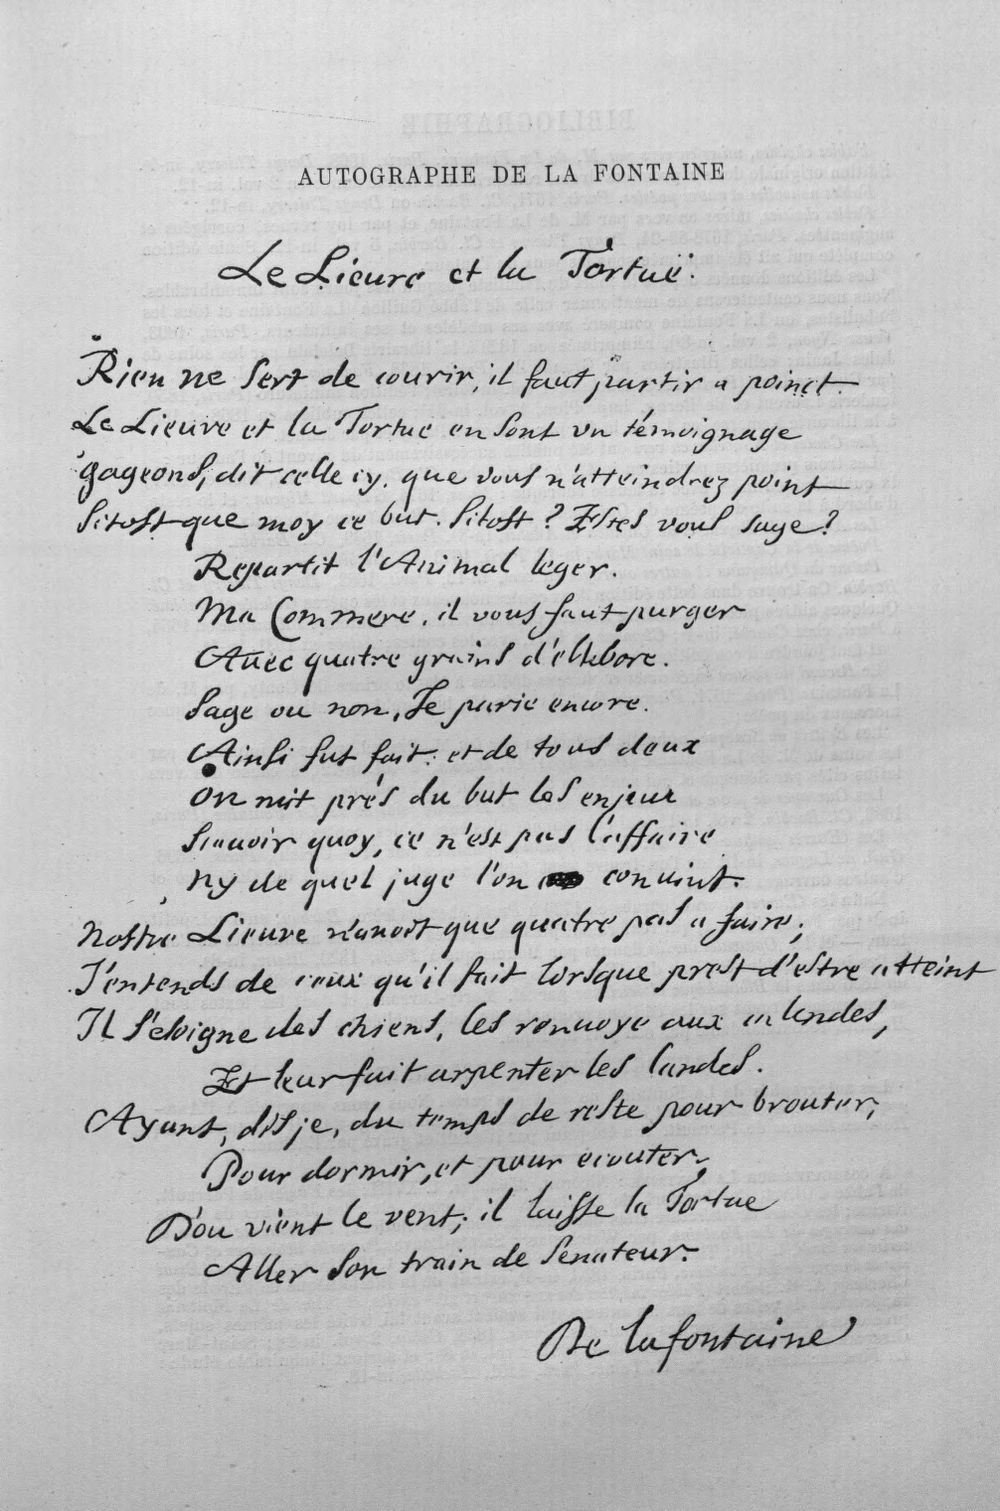 AUTOGRAPHE DE LA FONTAINE
Le Lieure et la Tortuë.
Rien ne sert de courir, il faut partir a poinct.
Le Lieure et la Tortue en sont vn témoignage
Gageons, dit celle cy, que vous n'atteindrez point
Sitost que moy ce but. Sitost? Estes vous sage?
Repartit l'Animal leger.
Ma Commere, il vous faut purger
Auec quatre grains d'ellebore.
Sage ou non, Je parie encore.
Ainsi fut fait: et de tous deux
On mit prés du but les enjeux
Scauoir quoy, ce n'est pas l'affaire
Ny de quel juge l'on conuint.
Nostre Lieure n'auoit que quatre pas a faire;
J'entends de ceux qu'il fait lorsque prest d'estre atteint
Il s'eloigne des chiens, les renuoye aux calendes,
Et leur fait arpenter les landes.
Ayant, dis je, du temps de reste pour brouter,
Pour dormir, et pour ecouter,
D'ou vient le vent; il laisse la Tortue
Aller son train de Senateur.
De lafontaine